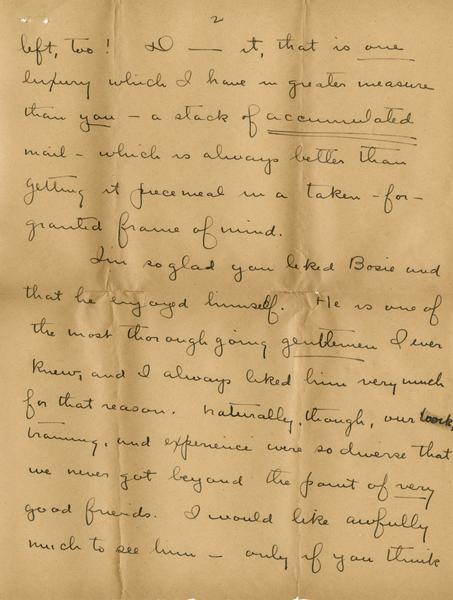 2
left, too! D — it, that is one
luxury which I have in greater measure
than you – a stack of accumulated
mail – which is always better than
getting it piecemeal in a taken-for-
granted frame of mind.
I'm so glad you liked Bosie and
that he enjoyed himself. He is one of
the most thorough going gentlemen I ever
knew, and I always liked him very much
for that reason. Naturally, though, our work,
training, and experience were so diverse that
we never got beyond the point of very
good friends. I would like awfully
much to see him – only if you think